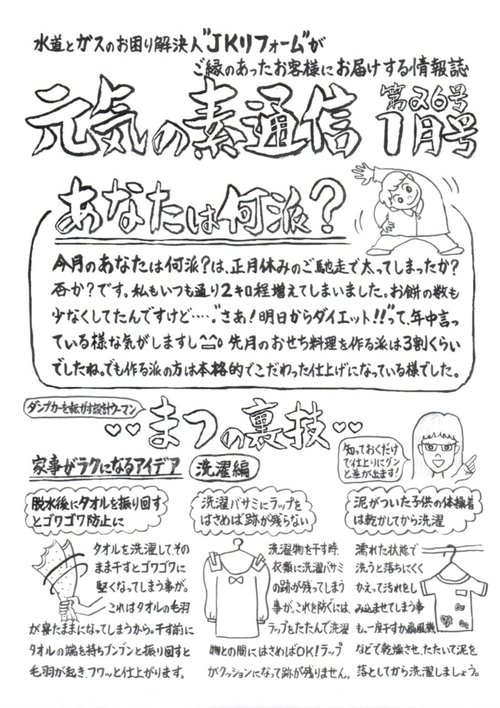 水道とガスのお困り解決人"JKリフォーム"が
ご縁のあったお客様にお届けする情報誌
元気の素通信
第26号
1月号
あなたは何派?
今月のあなたは何派?は、正月休みのご馳走で太ってしまったか?
否か?です。私もいつも通り2キロ程増えてしまいました。お餅の数も
少なくしてたんですけど‥‥。"さあ!明日からダイエット!!"って、年中言っ
ている様な気がしますし 先月のおせち料理を作る派は3割くらい
でしたね。でも作る派の方は本格的でこだわった仕上げになっている様でした。
ダンプカーを転がす設計ウーマン
まつの裏技
知っておくだけ
で仕上りにグン
と差が出ます!
家事がラクになるアイデア
洗濯編
脱水後にタオルを振り回す
とゴワゴワ防止に
タオルを洗濯してその
まま干すとゴワゴワに
堅くなってしまう事が。
これはタオルの毛羽
が寝たままになってしまうから。干す前に
タオルの端を持ちブンブンと振り回すと
毛羽が起き、フワッと仕上がります。
洗濯バサミにラップを
はさめば、跡が残らない
洗濯物を干す時、
衣類に洗濯バサミ
の跡が残ってしまう
事が、これを防ぐには、
ラップをたたんで洗濯
物との間にはさめばOK!ラップ
がクッションになって跡が残りません。
泥がついた子供の体操着
は乾かしてから洗濯
濡れた状態で
洗うと落ちにくく
かえって汚れをし
み込ませてしまう事
も。一度干すか扇風機
などで乾燥させ、たたいて泥を
落としてから洗濯しましょう。